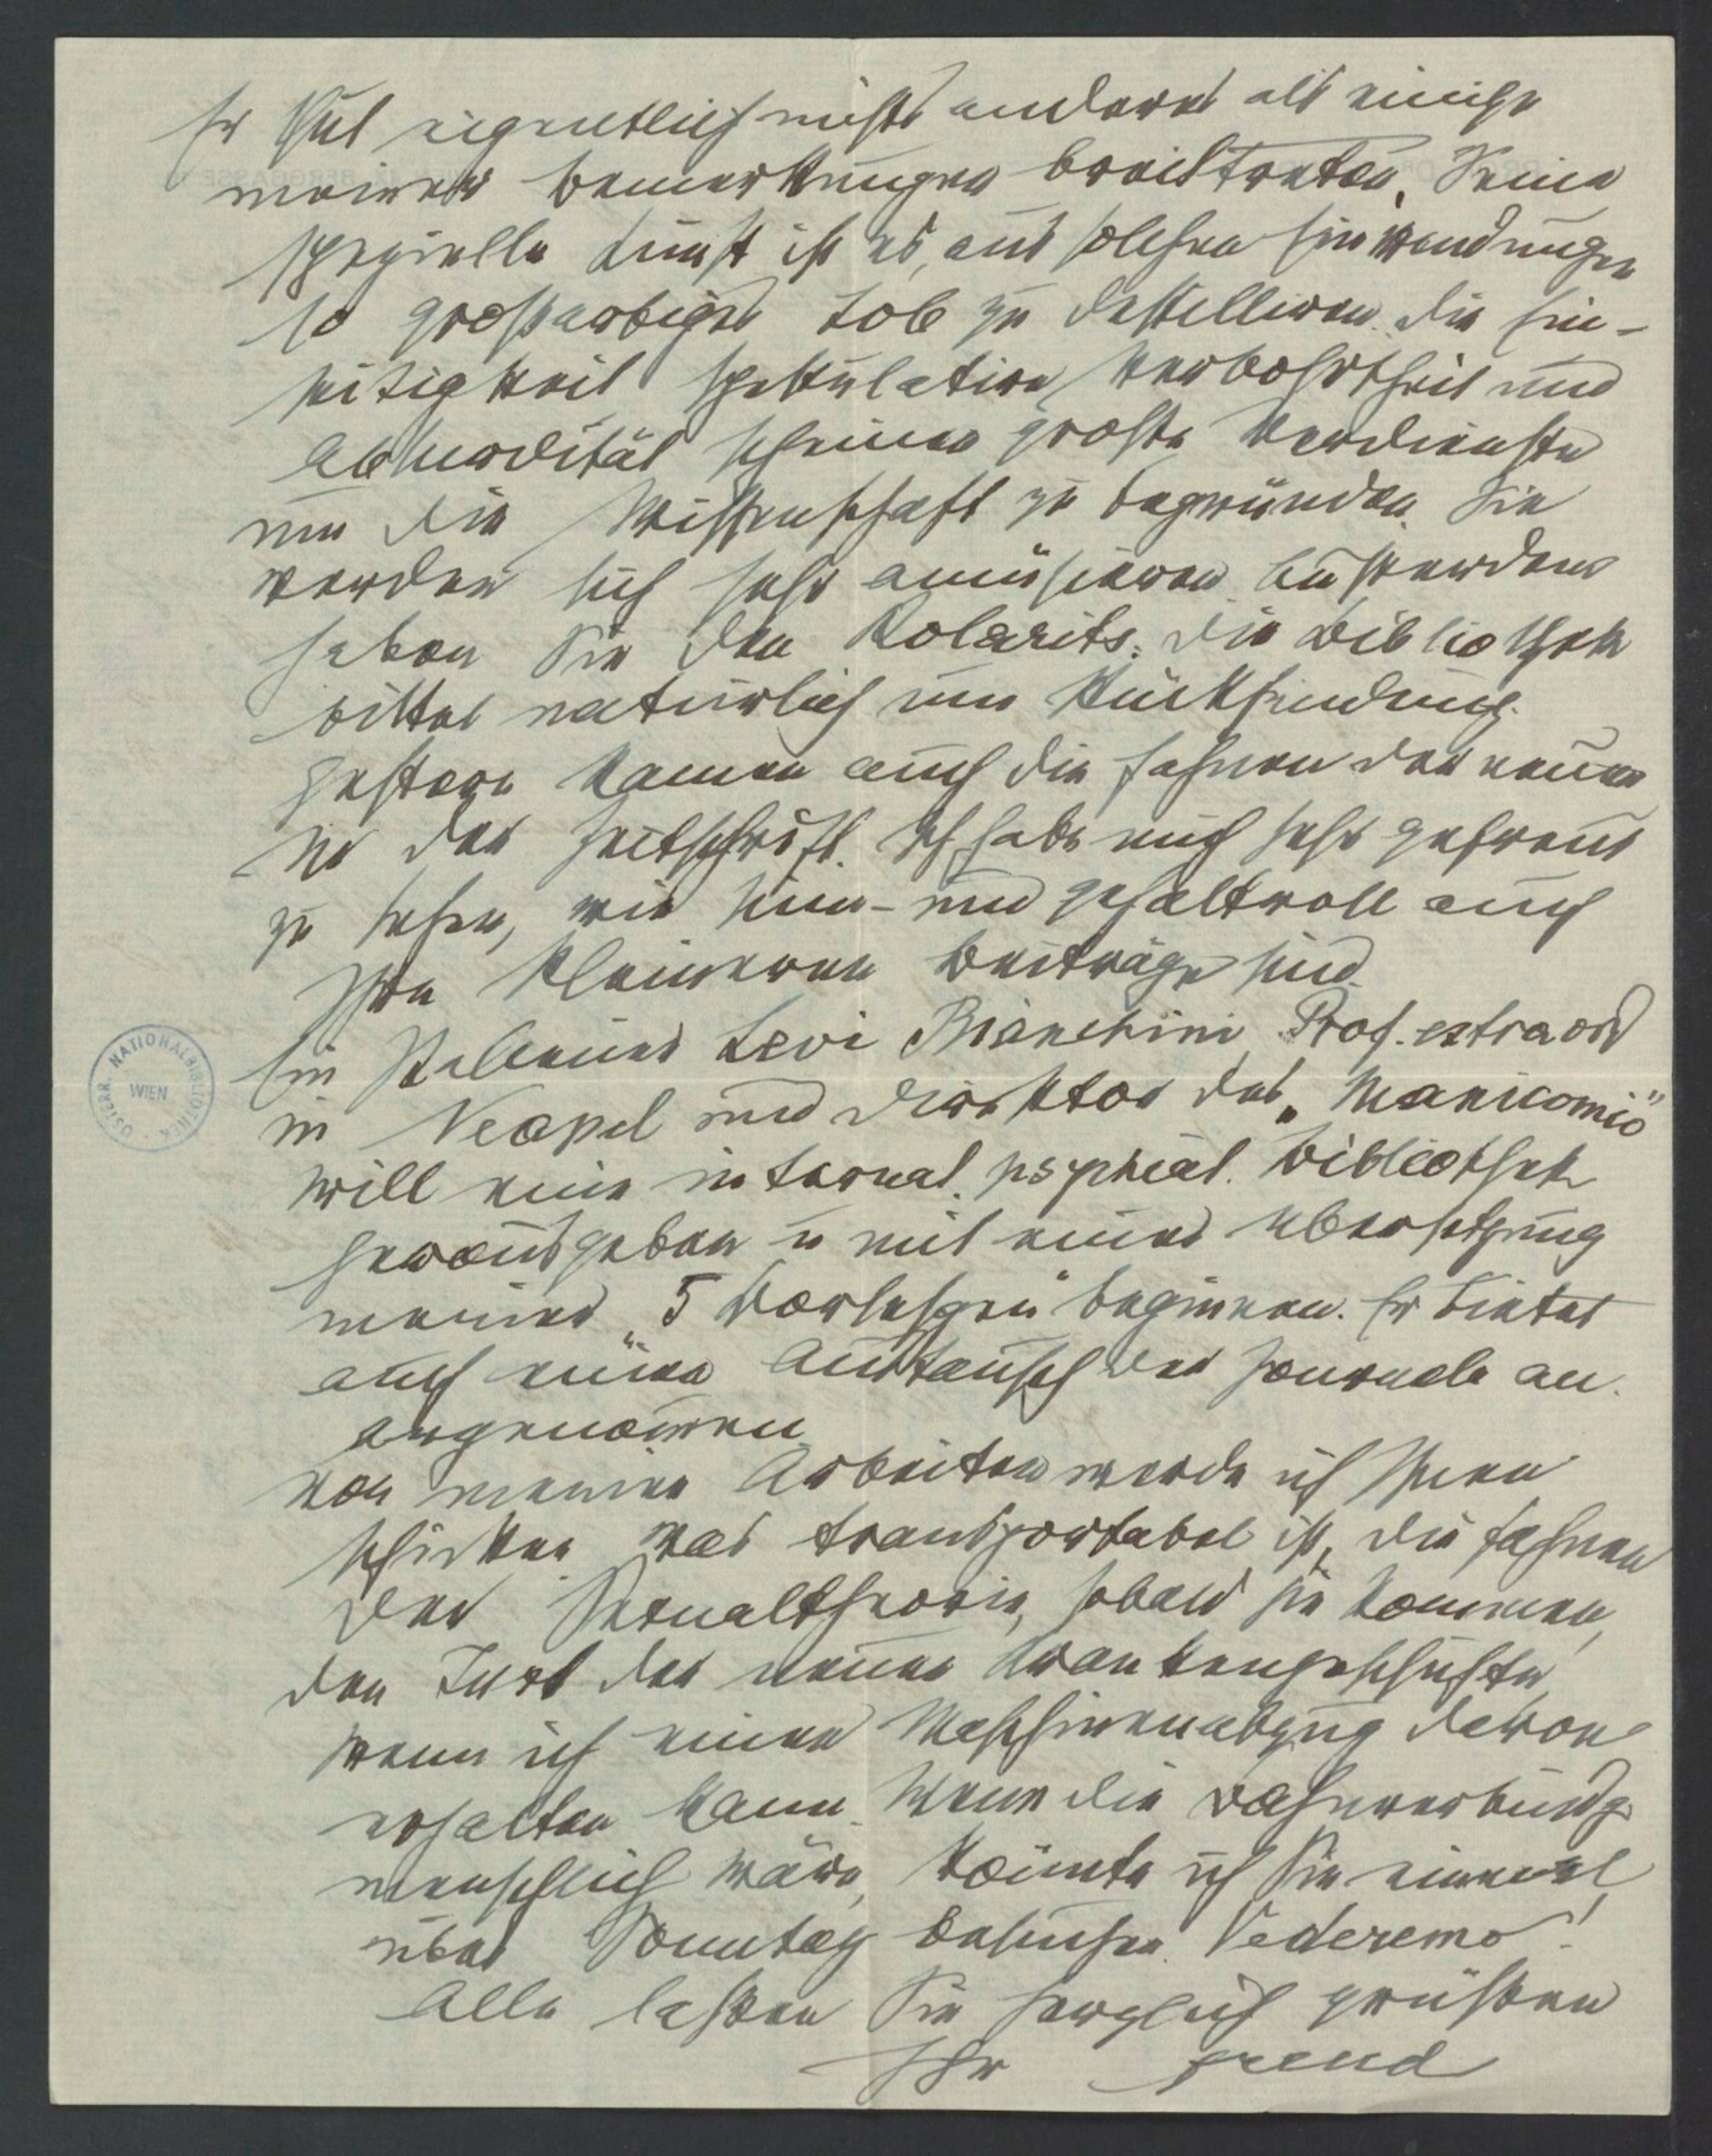 Er thut eigentlich nichts anderes als einige
meiner Bemerkungen breittreten. Seine
spezielle Kunst ist es, aus solchen Einwendungen
so großartiges Lob zu destilliren. Die Ein-
seitigkeit, spekulative Verbohrtheit und
Absurdität scheinen große Verdienste
um die Wissenschaft zu begründen. Sie
werden sich sehr amüsieren. Außerdem
haben Sie den Kolarits. Die Bibliothek
bittet natürlich um Rücksendung.
Gestern kamen auch die Fahnen der neuen
No der Zeitschrift. Ich habe mich sehr gefreut
zu sehen, wie sinn- und gehaltvoll auch
Ihre kleineren Beiträge sind.
Ein Italiener Levi Bianchini, Prof. extraord
in Neapel und Direktor des „Manicomio"
will eine internat. psychiat. Bibliothek
herausgeben u mit einer Übersetzung
meiner „5 Vorlesgen" beginnen. Er bietet
auch einen Austausch der Journale an.
Angenommen
Von meinen Arbeiten werde ich Ihnen
schicken, was transportabel ist, die Fahnen
der Sexualtheorie, sobald sie kommen,
den Text der neuen Krankengeschichte,
wenn ich einen Maschinenabzug davon
erhalten kann. Wenn die Bahnverbindg
menschlich wäre, könnte ich Sie einmal
über Sonntag besuchen. Vederemo!
Alle lassen Sie herzlich grüßen
Ihr Freud
ÖSTERR. NATIONALBIBLIOTHEK
WIEN